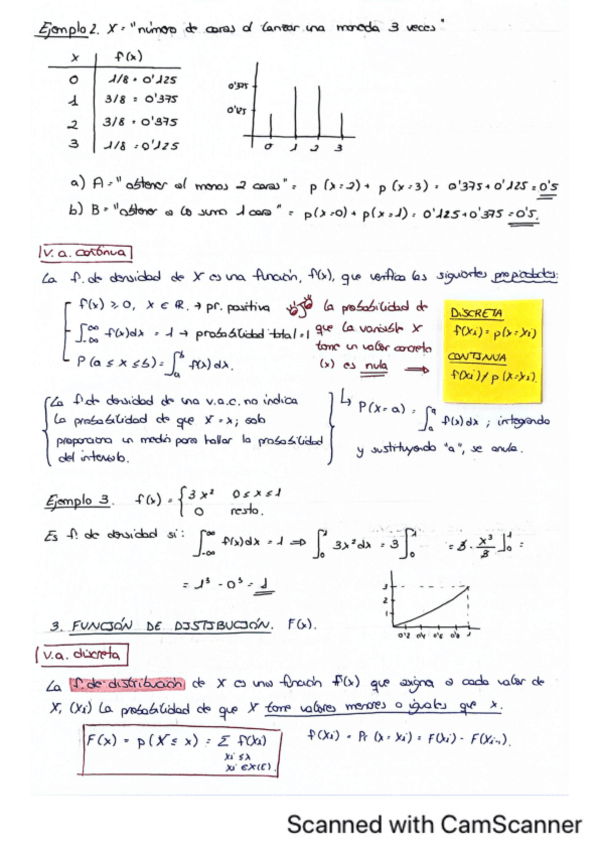 Ejemplo 2. X = "número de caras al lanzar una moneda 3 veces"
x | f(x)
0 | 1/8 = 0'125
1 | 3/8 = 0'375
2 | 3/8 = 0'375
3 | 1/8 = 0'125
0'375
0'125
0 1 2 3
a) A = "obtener al menos 2 caras" = p(x=2) + p(x=3) = 0'375 + 0'125 = 0'5
b) B = "obtener a lo sumo 1 cara" = p(x=0) + p(x=1) = 0'125 + 0'375 = 0'5.
V. a. continua
La f. de densidad de X es una función, f(x), que verifica las siguientes propiedades:
f(x) ≥ 0, x ∈ ℝ. → pr. positiva
∫_{-∞}^{∞} f(x)dx = 1 → probabilidad total = 1
P(a ≤ x ≤ b) = ∫_a^b f(x)dx.
la probabilidad de
que la variable X
tome un valor concreto
(x) es nula →
DISCRETA
f(xi) = p(x=xi)
CONTINUA
f(xi) / p(x=xi).
La f. de densidad de una v.a.c. no indica
la probabilidad de que X = x; solo
proporciona un medio para hallar la probabilidad
del intervalo.
↳ P(x=a) = ∫_a^a f(x)dx; integrando
y sustituyendo "a", se anula.
Ejemplo 3. f(x) = { 3x² 0 ≤ x ≤ 1
0 resto.
Es f. de densidad si: ∫_{-∞}^{∞} f(x)dx = 1 ⇒ ∫_0^1 3x²dx = 3∫_0^1 = 3·x³/3]_0^1 =
= 1³ - 0³ = 1
3
2
1
0'2 0'4 0'6 0'8 1
3. FUNCIÓN DE DISTRIBUCIÓN. F(x).
V. a. discreta
La f. de distribución de X es una función F(x) que asigna a cada valor de
X, (xi) la probabilidad de que X tome valores menores o iguales que x.
F(x) = p(X ≤ x) = Σ f(xi)
xi ≤ x
xi ∈ X(E).
f(xi) = Pr(x = xi) = F(xi) - F(xi-1).
Scanned with CamScanner